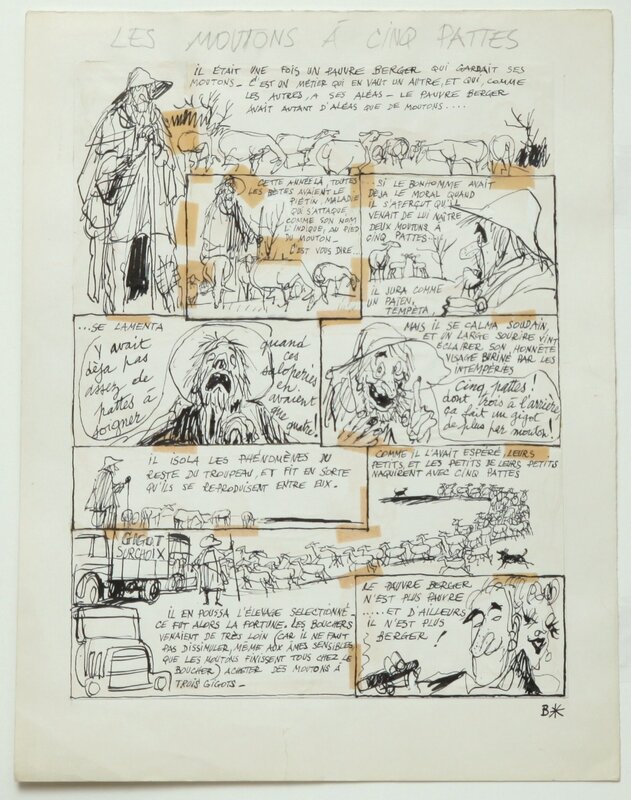 LES MOUTONS À CINQ PATTES
IL ÉTAIT UNE FOIS UN PAUVRE BERGER QUI GARDAIT SES
MOUTONS - C'EST UN MÉTIER QUI EN VAUT UN AUTRE, ET QUI, COMME
LES AUTRES, A SES ALÉAS - LE PAUVRE BERGER
AVAIT AUTANT D'ALÉAS QUE DE MOUTONS....
CETTE ANNÉE LÀ, TOUTES
LES BÊTES AVAIENT LE
PIÉTIN, MALADIE
QUI S'ATTAQUE,
COMME SON NOM
L'INDIQUE, AU PIED
DU MOUTON -
C'EST VOUS DIRE...
SI LE BONHOMME AVAIT
DÉJÀ LE MORAL QUAND
IL S'APERÇUT QU'IL
VENAIT DE LUI NAÎTRE
DEUX MOUTONS À
CINQ PATTES.
IL JURA COMME
UN PAÏEN,
TEMPÊTA,
...SE LAMENTA
y avait
déjà pas
assez de
pattes à
soigner
quand
ces
saloperies
en
avaient
que quatre!
MAIS IL SE CALMA SOUDAIN,
ET UN LARGE SOURIRE VINT
ÉCLAIRER SON HONNÊTE
VISAGE BURINÉ PAR LES
INTEMPÉRIES
Cinq pattes!
dont trois à l'arrière
ça fait un gigot
de plus par mouton!
IL ISOLA LES PHÉNOMÈNES DU
RESTE DU TROUPEAU, ET FIT EN SORTE
QU'ILS SE REPRODUISENT ENTRE EUX.
COMME IL L'AVAIT ESPÉRÉ, LEURS
PETITS, ET LES PETITS DE LEURS PETITS
NAQUIRENT AVEC CINQ PATTES
GIGOT
SURCHOIX
IL EN POUSSA L'ÉLEVAGE SELECTIONNÉ -
CE FUT ALORS LA FORTUNE. LES BOUCHERS
VENAIENT DE TRÈS LOIN (CAR IL NE FAUT
PAS DISSIMULER, MÊME AUX ÂMES SENSIBLES,
QUE LES MOUTONS FINISSENT TOUS CHEZ LE
BOUCHER) ACHETER DES MOUTONS À
TROIS GIGOTS -
LE PAUVRE BERGER
N'EST PLUS PAUVRE
.....ET D'AILLEURS
IL N'EST PLUS
BERGER !
B